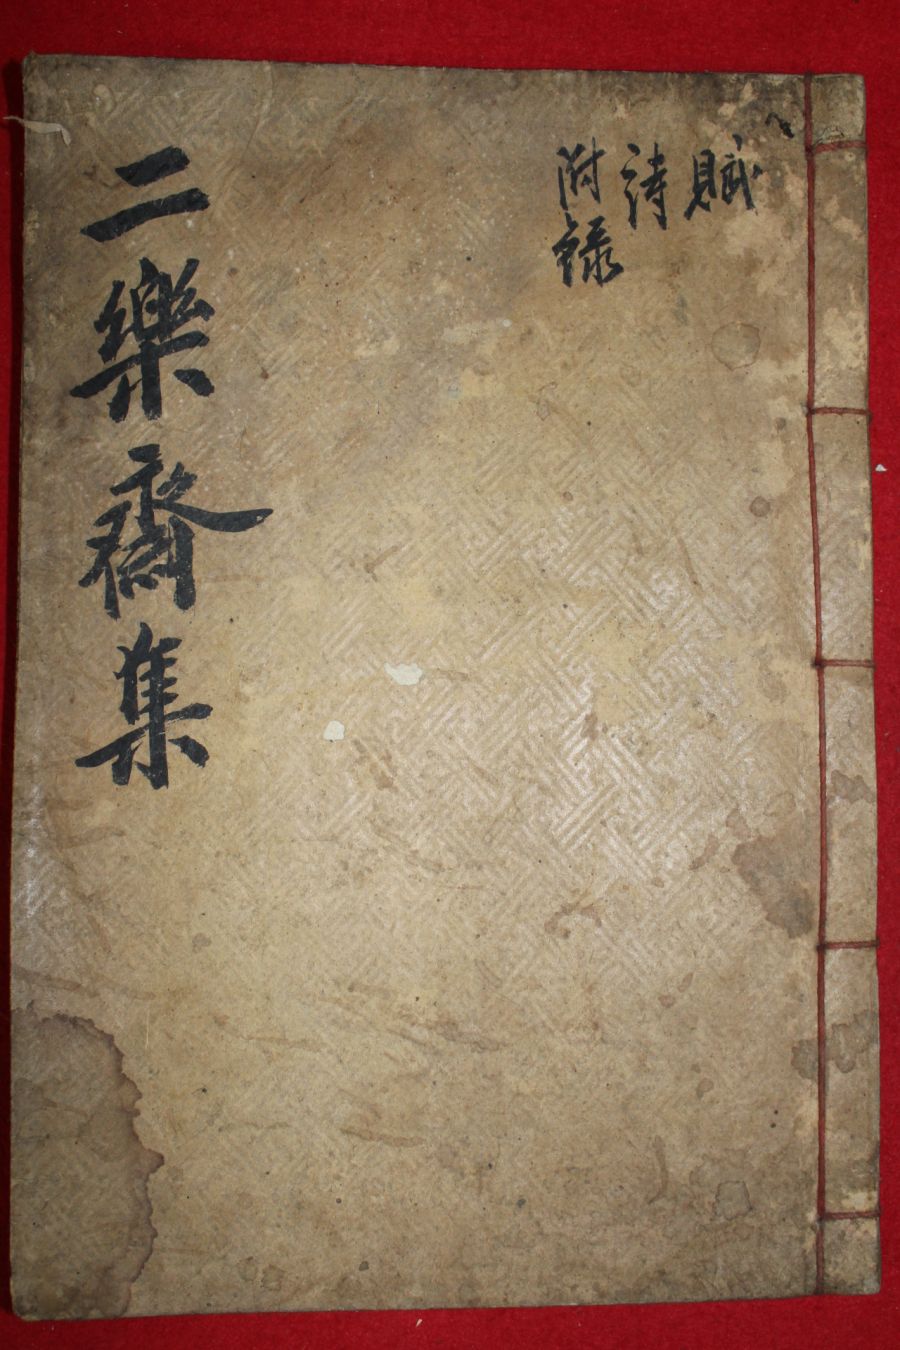 賦
詩
附錄
二樂齋集